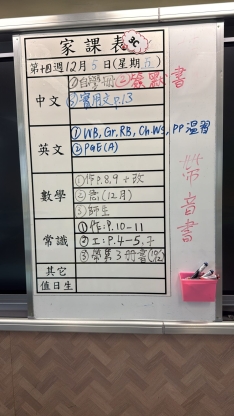 家課表
第十四週12月5日(星期五)
中文 ①自學冊②默書
③實用文p.13
英文 ①WB, Gr, RB, Ch.Ws, PP溫習
②PGE(A)
數學 ①作P.8,9 + 改
②(12月)
③師生
常識 ①作:P.10-11
②工:P.4-5, 7
③帶第3冊書
其它
值日生
帶音書